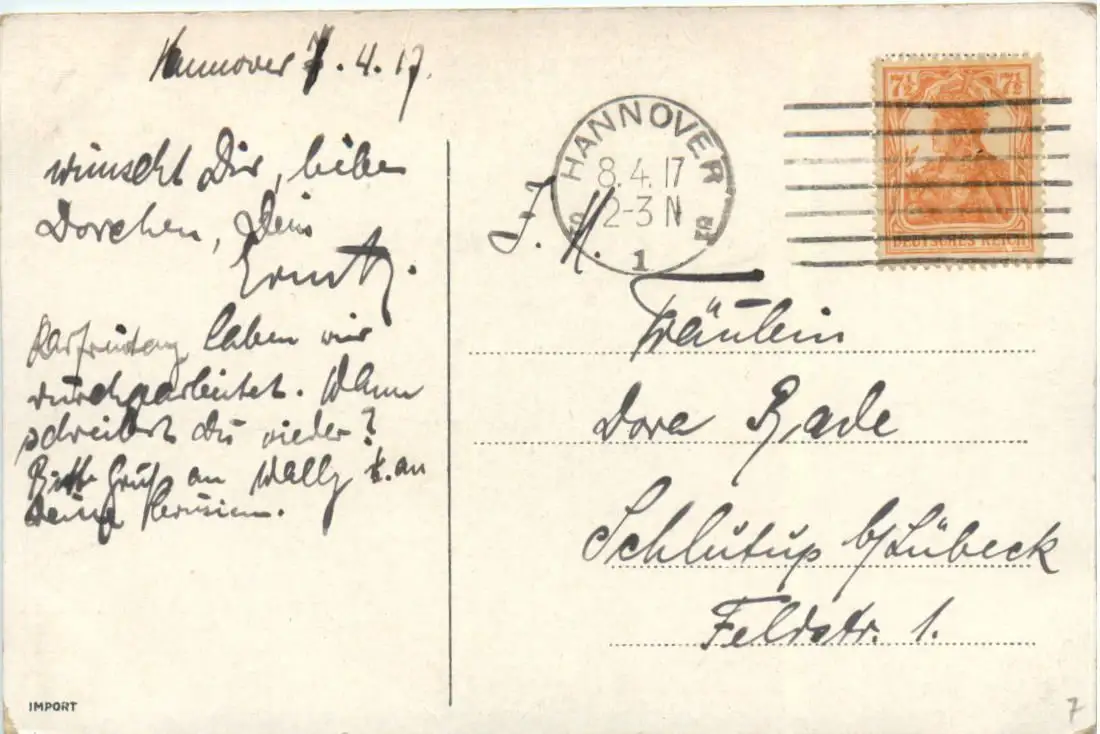 Hannover 7.4.17.
wünscht Dir, liebes
Dorchen, Dein
Ernst.
Karfreitag haben wir
durchgearbeitet. Wann
schreibst Du wieder?
Bitte Gruß an Wally u. an
Deine
HANNOVER
8.4.17
2-3 N
1
7½ 7½
DEUTSCHES REICH
Fräulein
Dora Rade
Schlutup b/Lübeck
Feldstr. 1.
IMPORT
7